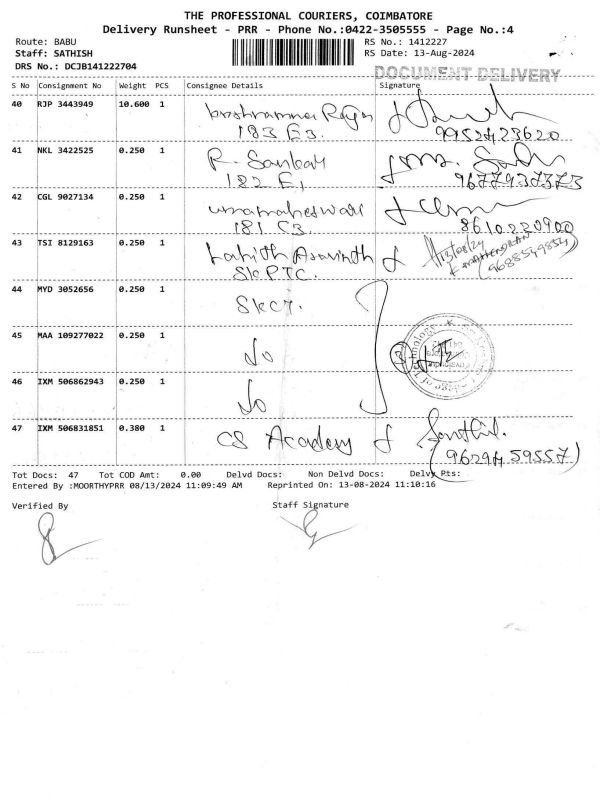 THE PROFESSIONAL COURIERS, COIMBATORE
Delivery Runsheet - PRR - Phone No.:0422-3505555 - Page No.:4
Route: BABU RS No.: 1412227
Staff: SATHISH RS Date: 13-Aug-2024
DRS No.: DCJB141222704
DOCUMENT DELIVERY
S No Consignment No Weight PCS Consignee Details Signature
40 RJP 3443949 10.600 1
183 E3. 9952423620
41 NKL 3422525 0.250 1 R. Sankar
182 E1 9677937373
42 CGL 9027134 0.250 1 umamaheswari
181 C3. 8610220900
43 TSI 8129163 0.250 1 Aravinth 13/08/24
SKPTC. MAHENDRAN (9688549854)
44 MYD 3052656 0.250 1 SKCT.
45 MAA 109277022 0.250 1 do
46 IXM 506862943 0.250 1 do
47 IXM 506831851 0.380 1 CS Academy Senthil.
(9629459557)
Tot Docs: 47 Tot COD Amt: 0.00 Delvd Docs: Non Delvd Docs: Delvy Pts:
Entered By :MOORTHYPRR 08/13/2024 11:09:49 AM Reprinted On: 13-08-2024 11:10:16
Verified By Staff Signature